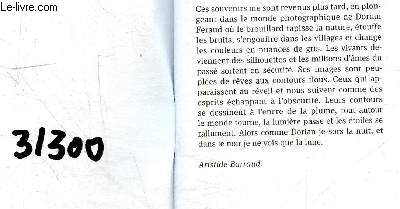 Le-livre.com
31300
Ces souvenirs me sont revenus plus tard, en plon-
geant dans le monde photographique de Dorian
Ferand où le brouillard tapisse la nature, étouffe
les bruits, s'engouffre dans les villages et change
les couleurs en nuances de gris. Les vivants de-
viennent des silhouettes et les millions d'âmes du
passé sortent en sécurité. Ses images sont peu-
plées de rêves aux contours flous. Ceux qui ap-
paraissent au réveil et nous suivent comme des
esprits échappant à l'obscurité. Leurs contours
se dessinent à l'encre de la plume, tout autour
le monde tourne, la lumière passe et les étoiles se
rallument. Alors comme Dorian je sors la nuit, et
dans le noir je ne vois que la lune.
Aristide Barraud